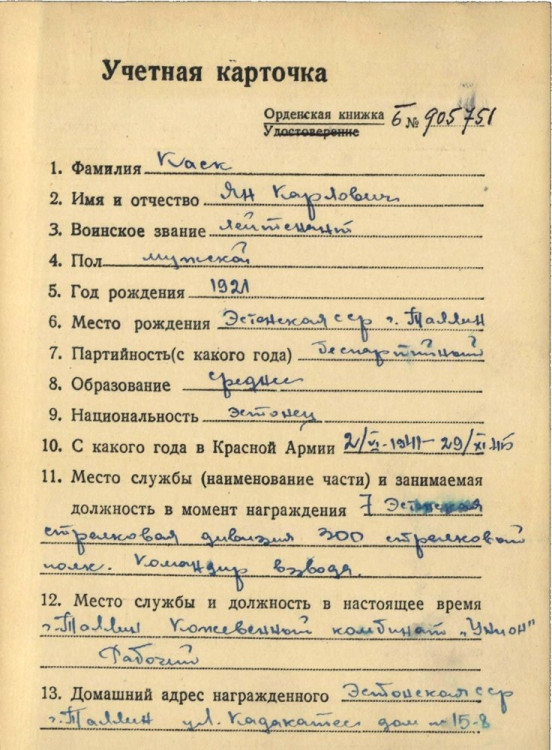 Учетная карточка
Орденская книжка Б № 905751
Удостоверение
1. Фамилия Каск
2. Имя и отчество Ян Карлович
3. Воинское звание лейтенант
4. Пол мужской
5. Год рождения 1921
6. Место рождения Эстонская сср г. Таллин
7. Партийность(с какого года) беспартийный
8. Образование среднее
9. Национальность эстонец
10. С какого года в Красной Армии 2/VI-1941-29/XI.46
11. Место службы (наименование части) и занимаемая
должность в момент награждения 7 Эстонская
стрелковая дивизия 300 стрелковой
полк. Командир взвода.
12. Место службы и должность в настоящее время
г. Таллин Кожевенный комбинат „Унион"
Рабочий
13. Домашний адрес награжденного Эстонская сср
г. Таллин ул. Кадака дом № 15-8